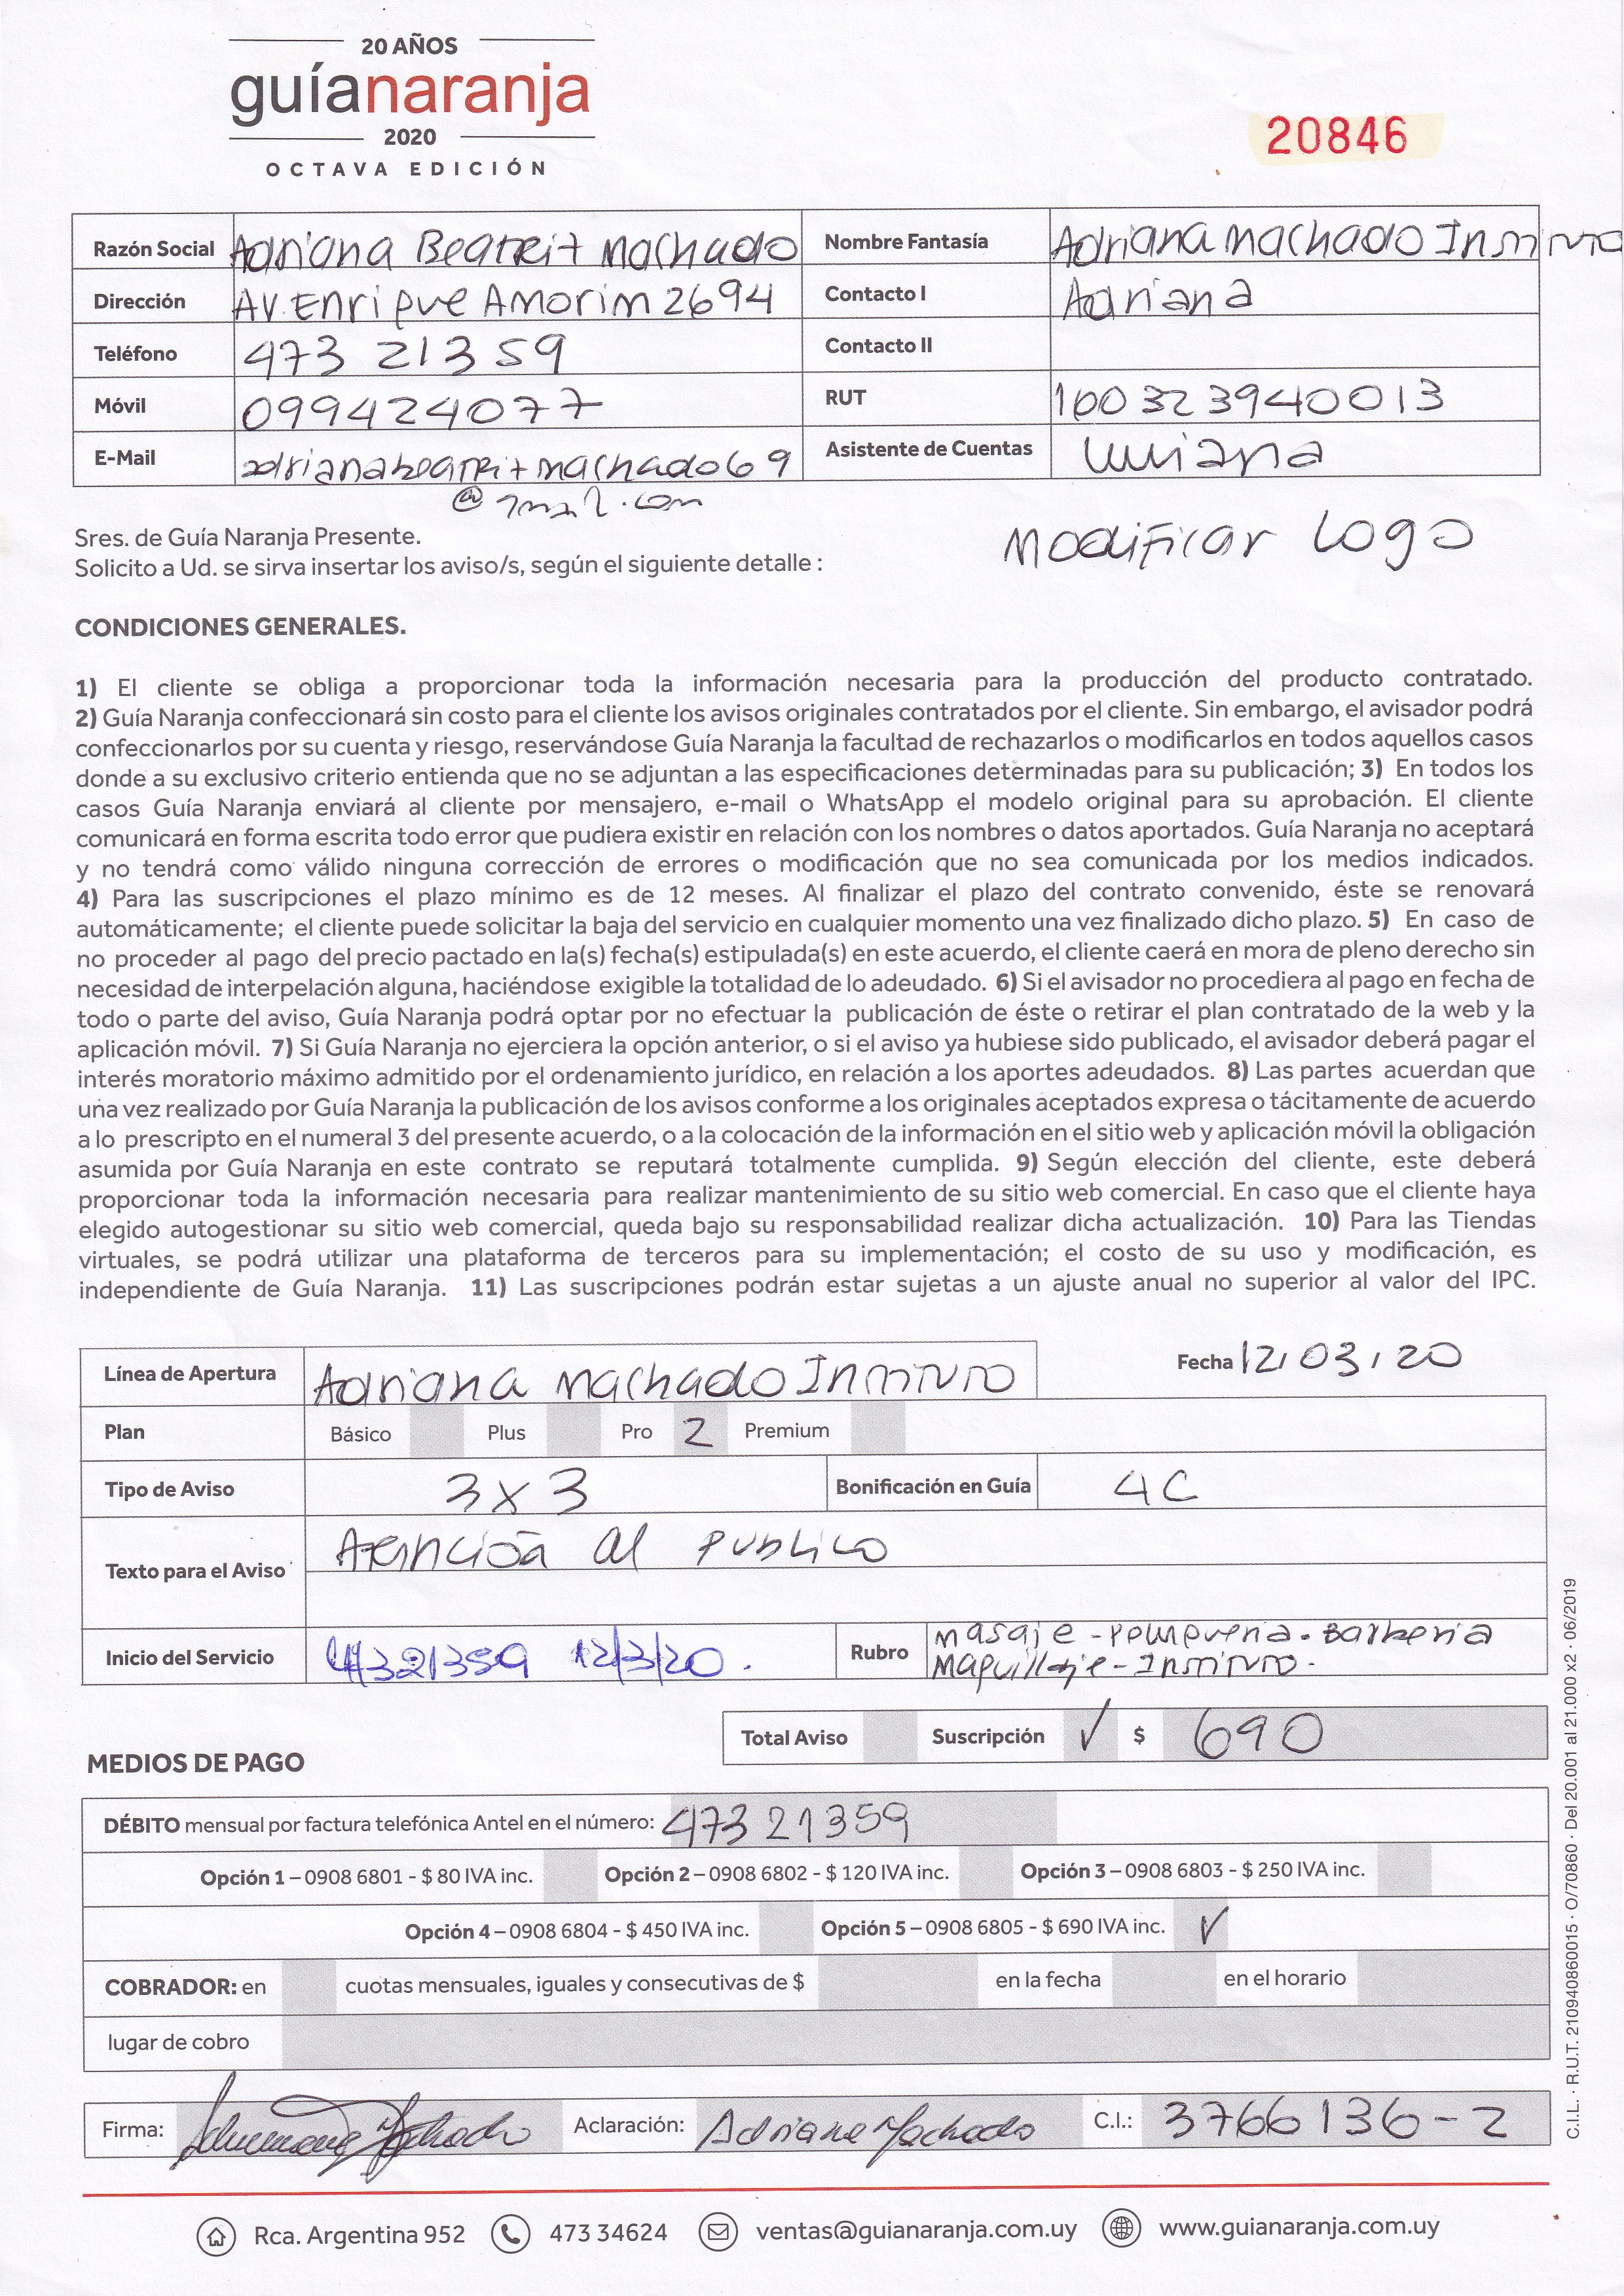 20 AÑOS
guíanaranja
2020
OCTAVA EDICIÓN
20846
Razón Social Adriana Beatriz Machado Nombre Fantasía Adriana Machado Instituto
Dirección Av. Enrique Amorim 2694 Contacto I Adriana
Teléfono 473 21359 Contacto II
Móvil 099424077 RUT 100323940013
E-Mail adrianabeatrizmachado69 Asistente de Cuentas
@gmail.com
Sres. de Guía Naranja Presente.
Modificar Logo
Solicito a Ud. se sirva insertar los aviso/s, según el siguiente detalle :
CONDICIONES GENERALES.
1) El cliente se obliga a proporcionar toda la información necesaria para la producción del producto contratado.
2) Guía Naranja confeccionará sin costo para el cliente los avisos originales contratados por el cliente. Sin embargo, el avisador podrá
confeccionarlos por su cuenta y riesgo, reservándose Guía Naranja la facultad de rechazarlos o modificarlos en todos aquellos casos
donde a su exclusivo criterio entienda que no se adjuntan a las especificaciones determinadas para su publicación; 3) En todos los
casos Guía Naranja enviará al cliente por mensajero, e-mail o WhatsApp el modelo original para su aprobación. El cliente
comunicará en forma escrita todo error que pudiera existir en relación con los nombres o datos aportados. Guía Naranja no aceptará
y no tendrá como válido ninguna corrección de errores o modificación que no sea comunicada por los medios indicados.
4) Para las suscripciones el plazo mínimo es de 12 meses. Al finalizar el plazo del contrato convenido, éste se renovará
automáticamente; el cliente puede solicitar la baja del servicio en cualquier momento una vez finalizado dicho plazo. 5) En caso de
no proceder al pago del precio pactado en la(s) fecha(s) estipulada(s) en este acuerdo, el cliente caerá en mora de pleno derecho sin
necesidad de interpelación alguna, haciéndose exigible la totalidad de lo adeudado. 6) Si el avisador no procediera al pago en fecha de
todo o parte del aviso, Guía Naranja podrá optar por no efectuar la publicación de éste o retirar el plan contratado de la web y la
aplicación móvil. 7) Si Guía Naranja no ejerciera la opción anterior, o si el aviso ya hubiese sido publicado, el avisador deberá pagar el
interés moratorio máximo admitido por el ordenamiento jurídico, en relación a los aportes adeudados. 8) Las partes acuerdan que
una vez realizado por Guía Naranja la publicación de los avisos conforme a los originales aceptados expresa o tácitamente de acuerdo
a lo prescripto en el numeral 3 del presente acuerdo, o a la colocación de la información en el sitio web y aplicación móvil la obligación
asumida por Guía Naranja en este contrato se reputará totalmente cumplida. 9) Según elección del cliente, este deberá
proporcionar toda la información necesaria para realizar mantenimiento de su sitio web comercial. En caso que el cliente haya
elegido autogestionar su sitio web comercial, queda bajo su responsabilidad realizar dicha actualización. 10) Para las Tiendas
virtuales, se podrá utilizar una plataforma de terceros para su implementación; el costo de su uso y modificación, es
independiente de Guía Naranja. 11) Las suscripciones podrán estar sujetas a un ajuste anual no superior al valor del IPC.
Línea de Apertura Adriana Machado Instituto Fecha 12/03/20
Plan Básico Plus Pro 2 Premium
Tipo de Aviso 3x3 Bonificación en Guía 4C
Texto para el Aviso Atención al publico
Inicio del Servicio 47321359 12/3/20. Rubro Masaje - Peluqueria - Barberia
Maquillaje - Instituto.
Total Aviso Suscripción ✓ $ 690
MEDIOS DE PAGO
DÉBITO mensual por factura telefónica Antel en el número: 473 21359
Opción 1 – 0908 6801 - $ 80 IVA inc. Opción 2 – 0908 6802 - $ 120 IVA inc. Opción 3 – 0908 6803 - $ 250 IVA inc.
Opción 4 – 0908 6804 - $ 450 IVA inc. Opción 5 – 0908 6805 - $ 690 IVA inc. ✓
COBRADOR: en cuotas mensuales, iguales y consecutivas de $ en la fecha en el horario
lugar de cobro
Firma: Aclaración: Adriana Machado C.I.: 3766136-2
Rca. Argentina 952 473 34624 ventas@guianaranja.com.uy www.guianaranja.com.uy
C.I.L. · R.U.T. 210940860015 · O/70860 · Del 20.001 al 21.000 x2 · 06/2019